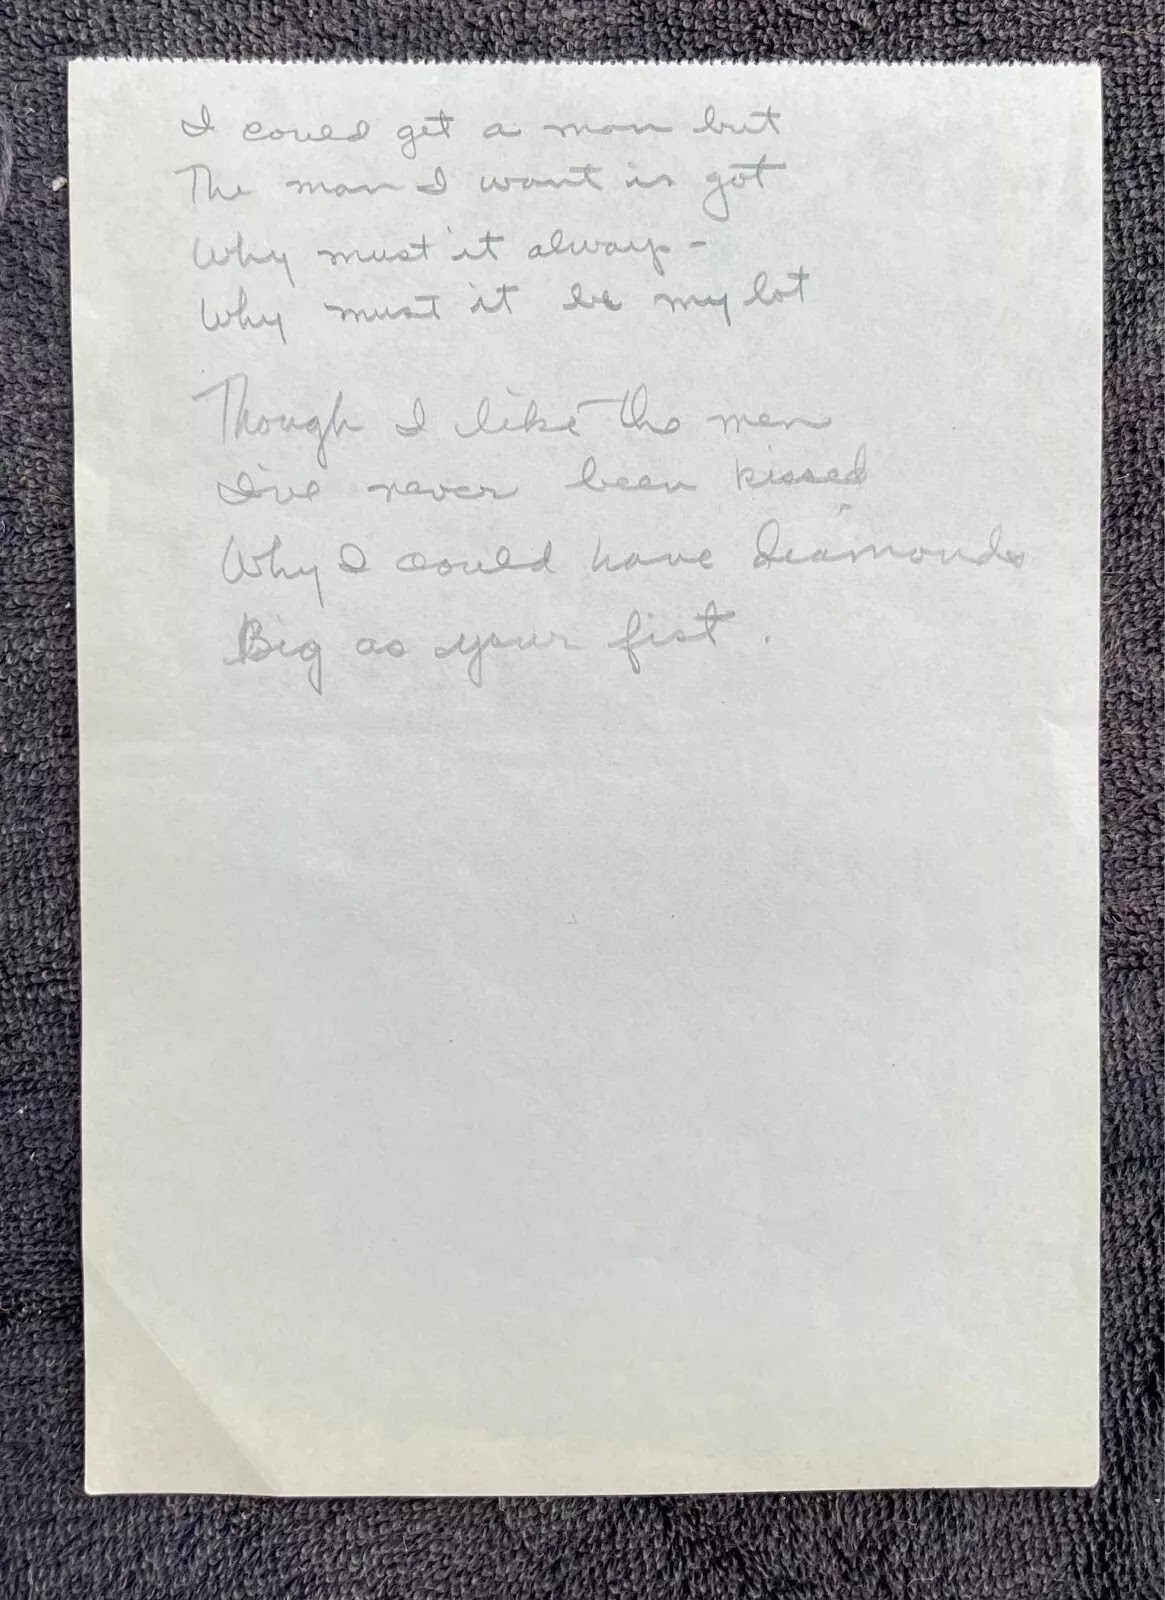 I could get a man but
The man I want is got
Why must it always -
Why must it be my lot
Though I like the men
I've never been kissed
Why I could have diamonds
Big as your fist.